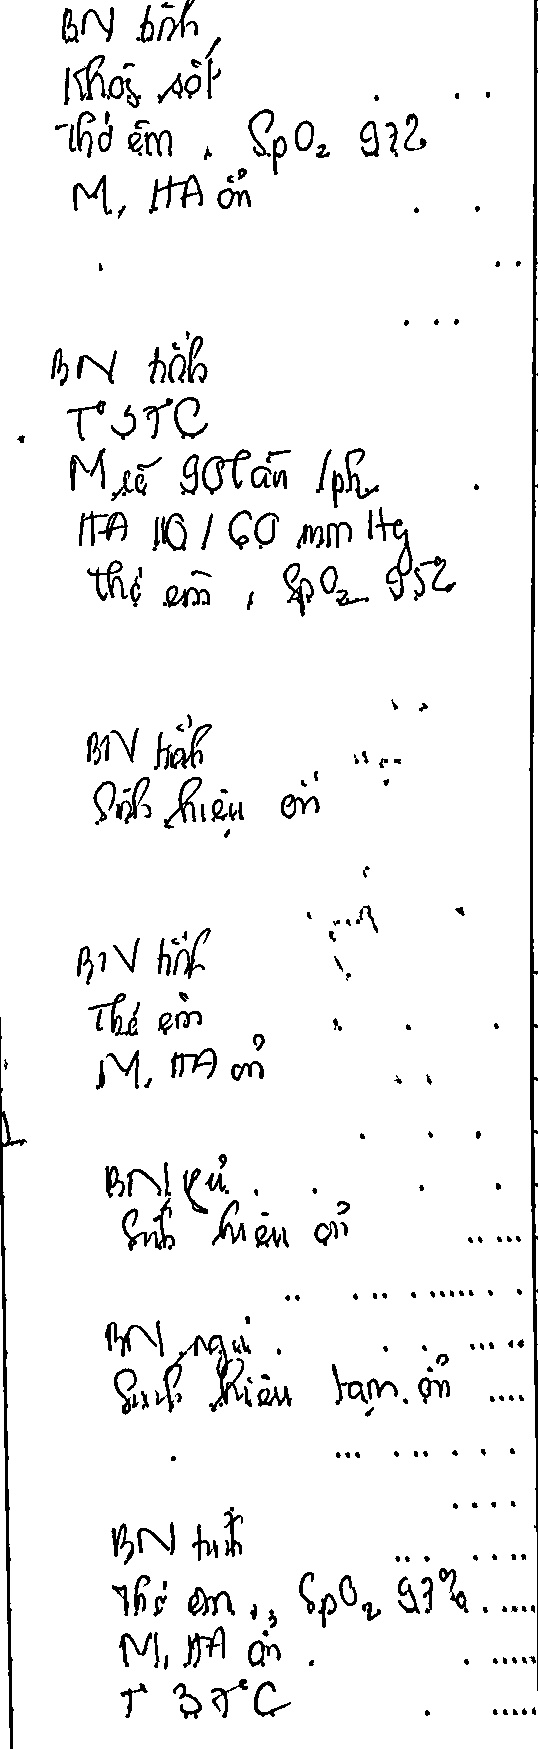 BN tỉnh
Khỏi sốt
Thở êm, SpO₂ 97%
M, HA ổn
BN tỉnh
T° 37°C
M sẽ 90 lần /ph
HA 110 / 60 mmHg
Thở êm, SpO₂ 95%
BN tỉnh
Sinh hiệu ổn
BN tỉnh
Thở êm
M, HA ổn
BN
Sinh hiệu ổn
BN ngủ
Sinh hiệu tạm ổn
BN tỉnh
Thở êm, SpO₂ 97%
M, HA ổn
T° 37°C